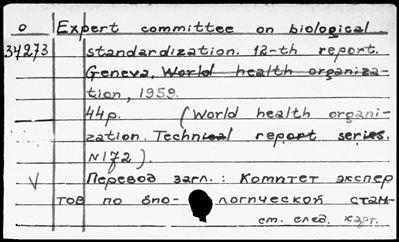 o Expert committee on biological
34273 standardization. 12-th report.
Geneva, World health organiza-
tion, 1959.
44p. (World health organi-
zation. Technical report series.
N172).
V Перевод загл.: Комитет экспер
тов по био- логической стан-
см. след. карт.